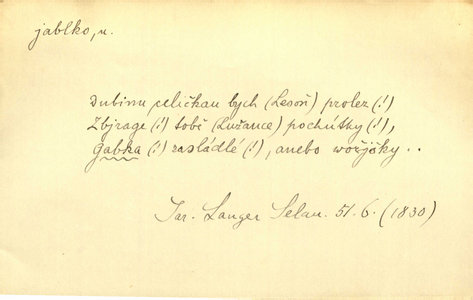 jablko, n.
Dubinu celičkau bych (Lesoň) prolez (!)
Zbjrage (!) sobě (Lužance) pochútky (!),
Gabka (!) zasládlé (!), anebo wořjšky ..
Jar. Langer Selan. 51.6. (1830)